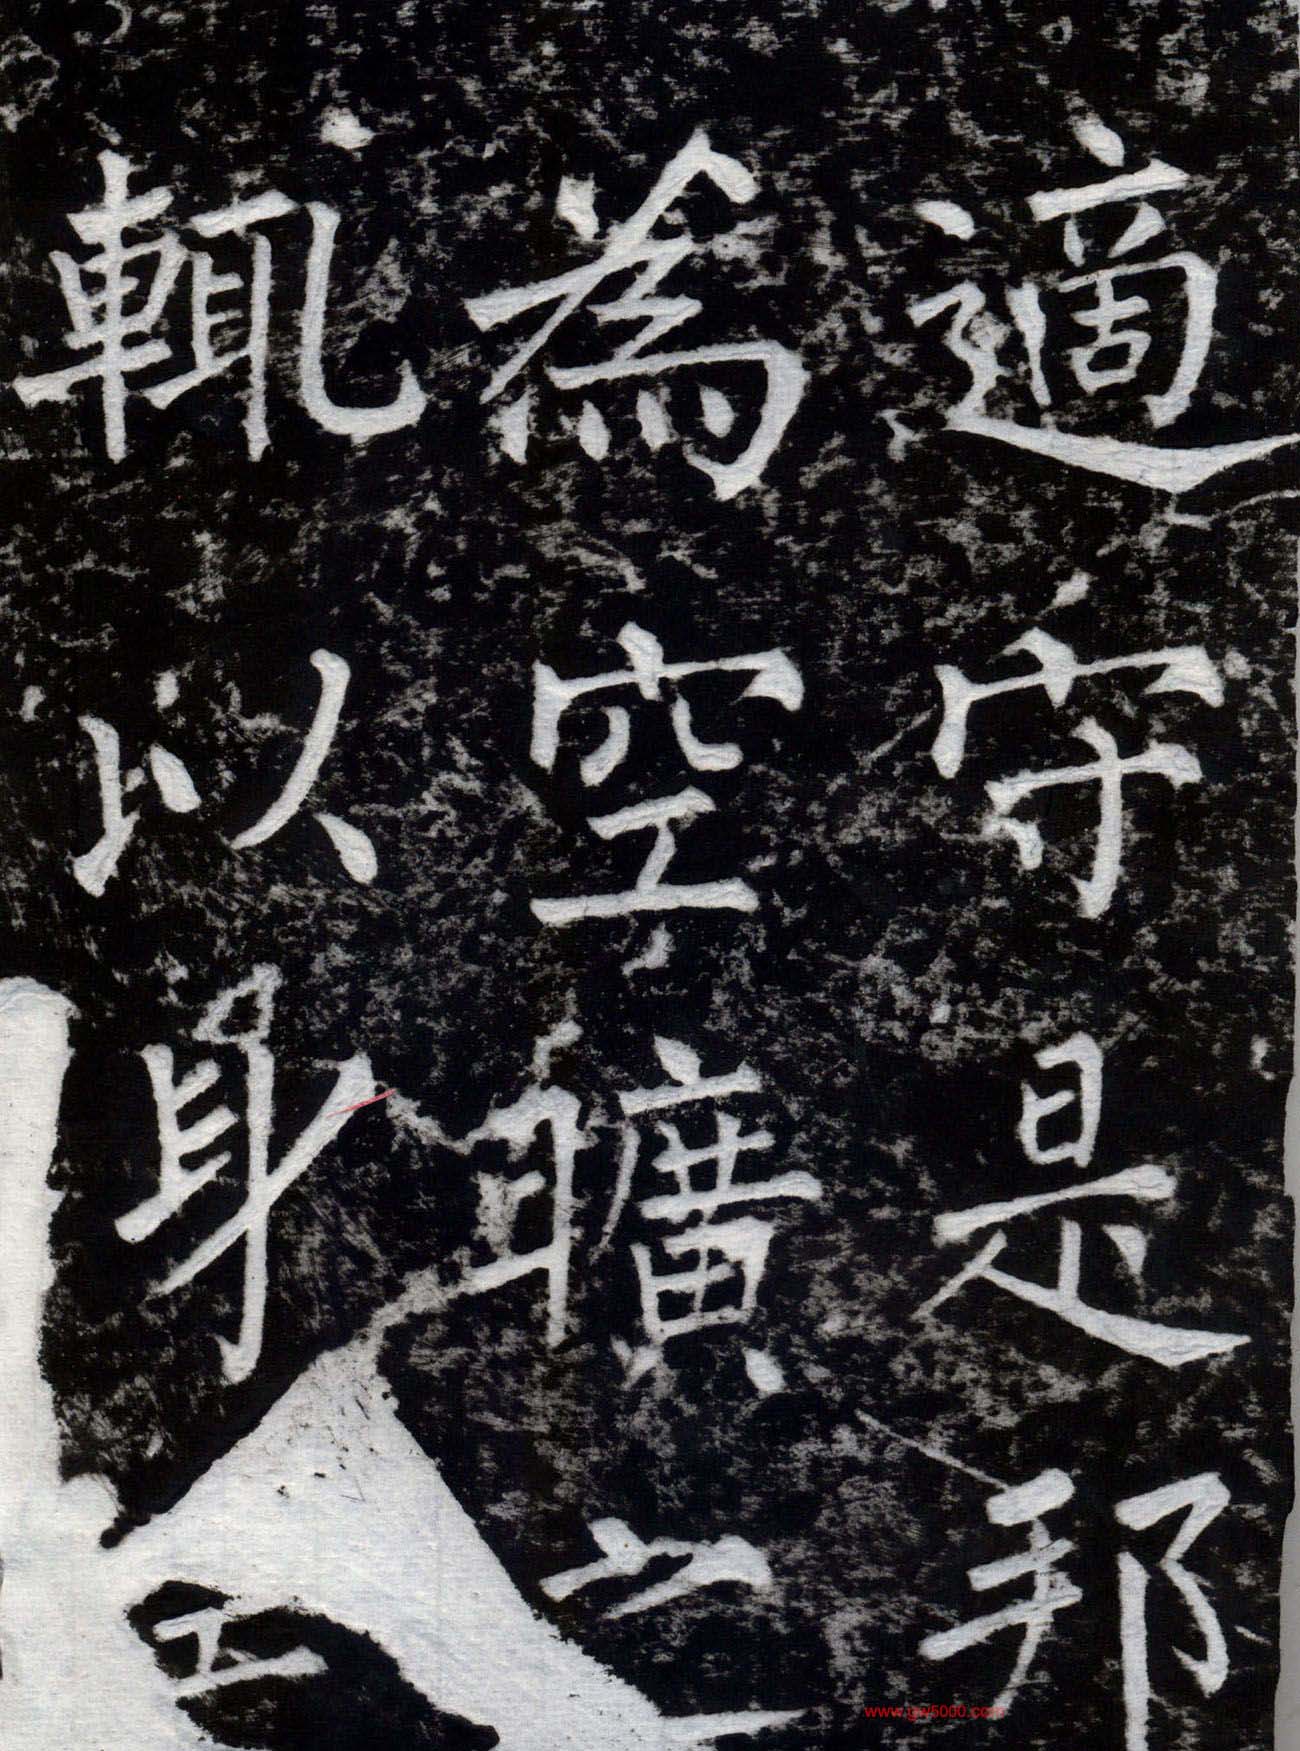 適守是邦
為空曠之
輒以身
www.gw5000.com